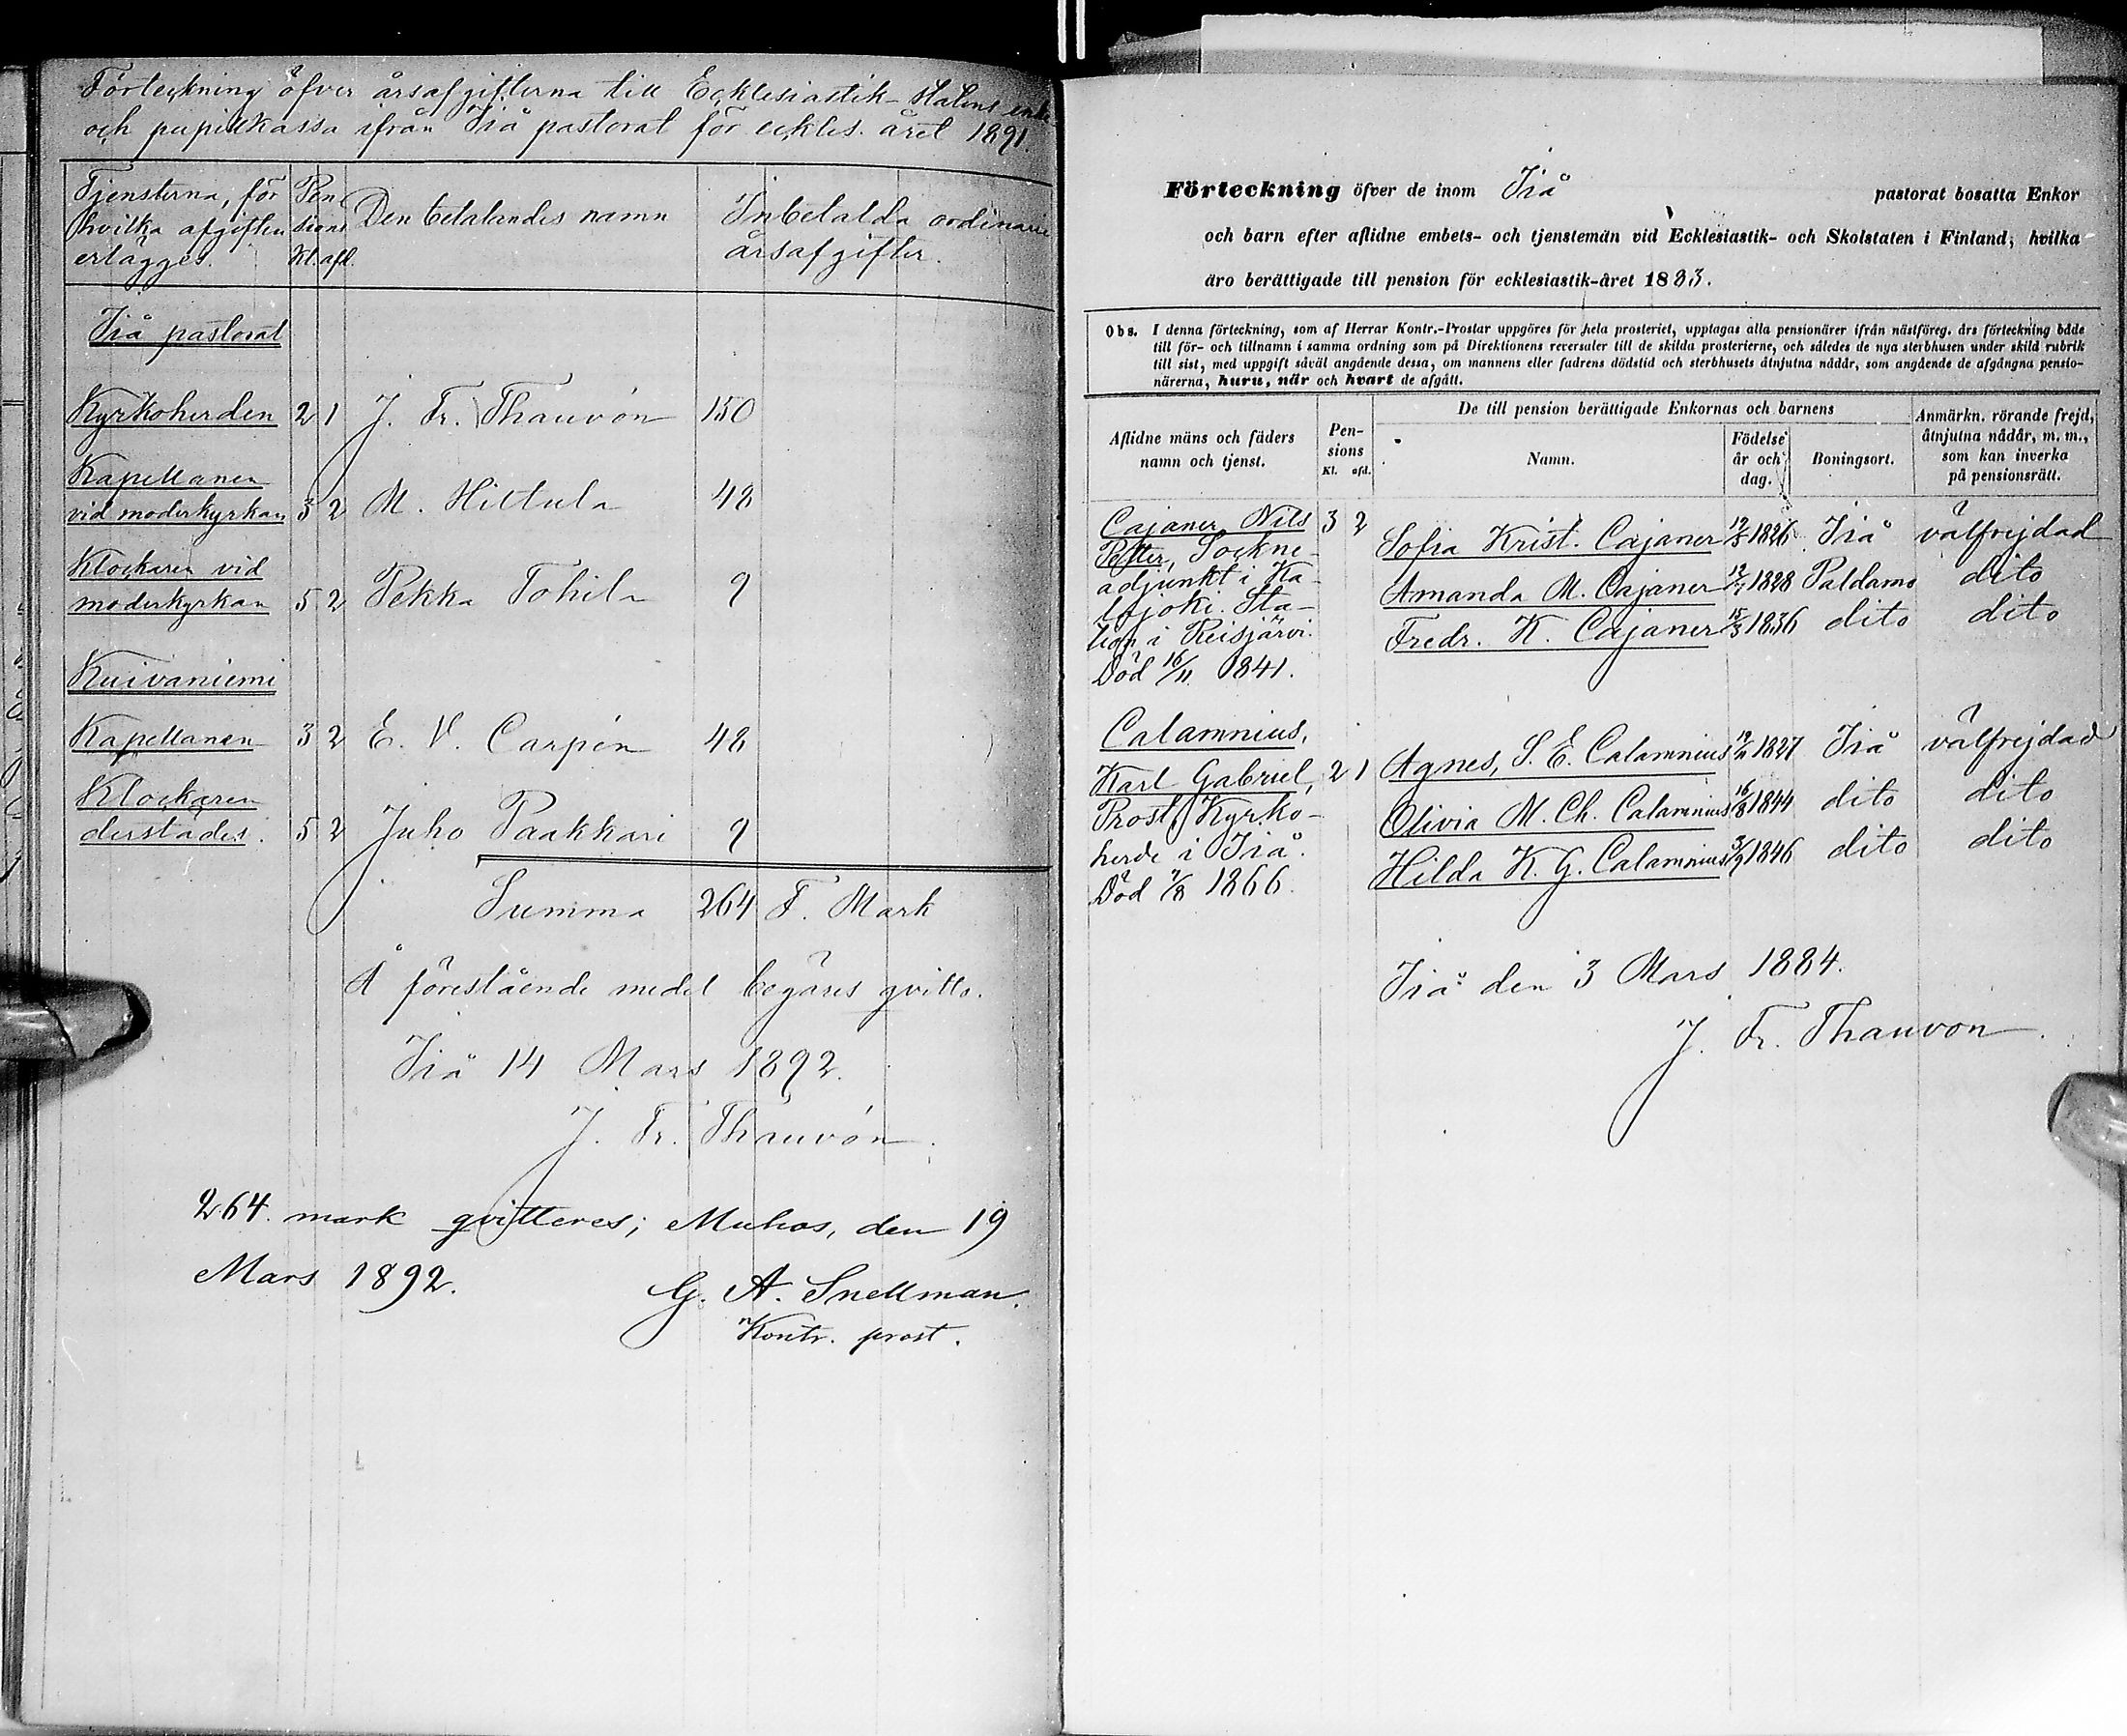 Förteckning öfver årsafgifterna till Ecklesiastik-statens enke
och pupillkassa ifrån Iiå pastorat för eckles. året 1891.
Tjensterna, för hvilka afgiften erlägges. Pensions Kl. afl. Den betalandes namn Inbetalda ordinarie årsafgifter.
Iiå pastorat
Kyrkoherden 2 1 J. Fr. Thauvón 150
Kapellanen
vid moderkyrkan 3 2 M. Hittula 48
Klockaren vid
moderkyrkan 5 2 Pekka Tohila 9
Kuivaniemi
Kapellanen 3 2 E. V. Carpén 48
Klockaren
derstädes. 5 2 Juho Paakkari 9
Summa 264 F. Mark
Å förestående medel begäres qvitto.
Iiå 14 Mars 1892.
J. Fr. Thauvón.
264 mark qvitteres; Muhos, den 19
Mars 1892.
G. A. Snellman.
Kontr. prost.
Förteckning öfver de inom Iiå pastorat bosatta Enkor
och barn efter aflidne embets- och tjenstemän vid Ecklesiastik- och Skolstaten i Finland, hvilka
äro berättigade till pension för ecklesiastik-året 1883.
Obs. I denna förteckning, som af Herrar Kontr.-Prostar uppgöres för hela prosteriet, upptagas alla pensionärer ifrån nästföreg. års förteckning både
till för- och tillnamn i samma ordning som på Direktionens reversaler till de skilda prosterierne, och således de nya sterbhusen under skild rubrik
till sist, med uppgift såväl angående dessa, om mannens eller fadrens dödstid och sterbhusets åtnjutna nådår, som angående de afgångna pensio-
närerna, huru, när och hvart de afgått.
Aflidne mäns och fäders
namn och tjenst.
Pen-
sions
Kl. afd.
De till pension berättigade Enkornas och barnens
Namn.
Födelse
år och
dag.
Boningsort.
Anmärkn. rörande frejd,
åtnjutna nådår, m. m.,
som kan inverka
på pensionsrätt.
Cajaner Nils 3 2
Petter, Sockne-
adjunkt i Ka-
lajoki. Sta-
tion i Reisjärvi.
Död 16/11 1841.
Sofia Krist. Cajaner 12/3 1826 Iiå välfrejdad
Amanda M. Cajaner 1828 Paldamo dito
Fredr. K. Cajaner 15/3 1836 dito dito
Calamnius,
Karl Gabriel, 2 1
Prost, Kyrko-
herde i Iiå.
Död 7/8 1866.
Agnes, S. E. Calamnius 1827 Iiå välfrejdad
Olivia M. Ch. Calamnius 16/8 1844 dito dito
Hilda K. G. Calamnius 3/9 1846 dito dito
Iiå den 3 Mars 1884.
J. Fr. Thauvon.